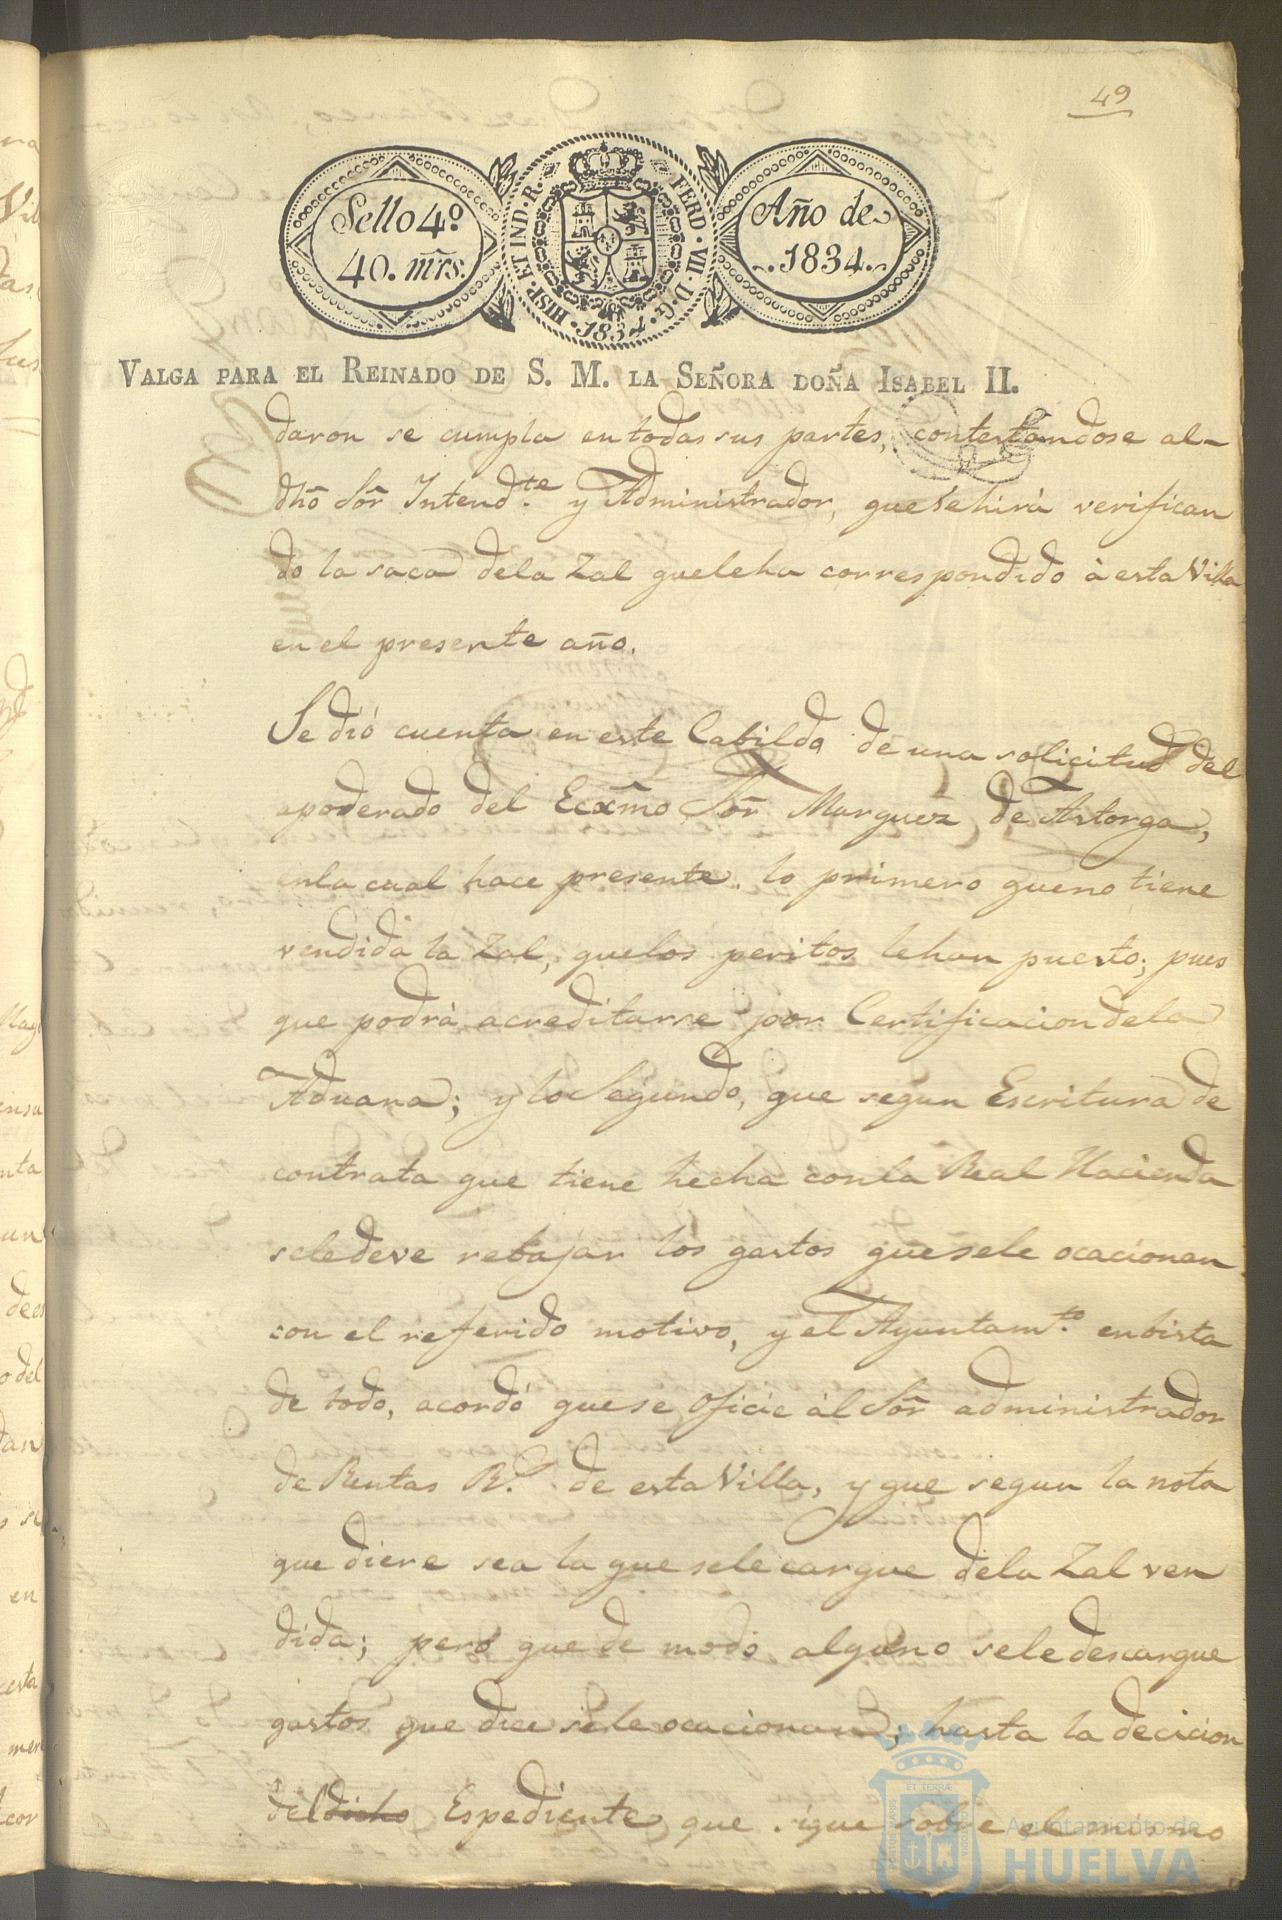 49
Sello 4º.
40. mrs.
HISP. ET IND. R. FERD. VII. D. G. 1834.
Año de
1834.
VALGA PARA EL REINADO DE S. M. LA SEÑORA DOÑA ISABEL II.
daron se cumpla en todas sus partes, contestandose al-
dhõ Sõr Intendte. y Administrador, que se hirà verifican
do la saca dela Zal que leha correspondido à esta Villa
en el presente año.
Se dió cuenta en este Cabildo de una solicitud del
apoderado del Ecxm̃o Sõr Marquez de Astorga,
enla cual hace presente. lo primero queno tiene
vendida la Zal, quelos peritos lehan puesto; pues
que podrà acreditarse por Certificacion dela
Aduana; y lo Segundo, que segun Escritura de
contrata que tiene hecha conla Real Hacienda
seledeve rebajar los gastos quesele ocacionan
con el referido motivo, y el Ayuntamto. enbista
de todo, acordó quese oficie àl Sõr administrador
de Rentas Rs. de esta Villa, y que segun la nota
que diere sea la que sele cargue dela Zal ven
dida; pero que de modo alguno sele descargue
gastos que dice sele ocacionan; hasta la decicion
del dicho Espediente que sigue sobre el mismo
ET TERRÆ
PORTUS MARIS
CUSTODIA
Ayuntamiento de
HUELVA